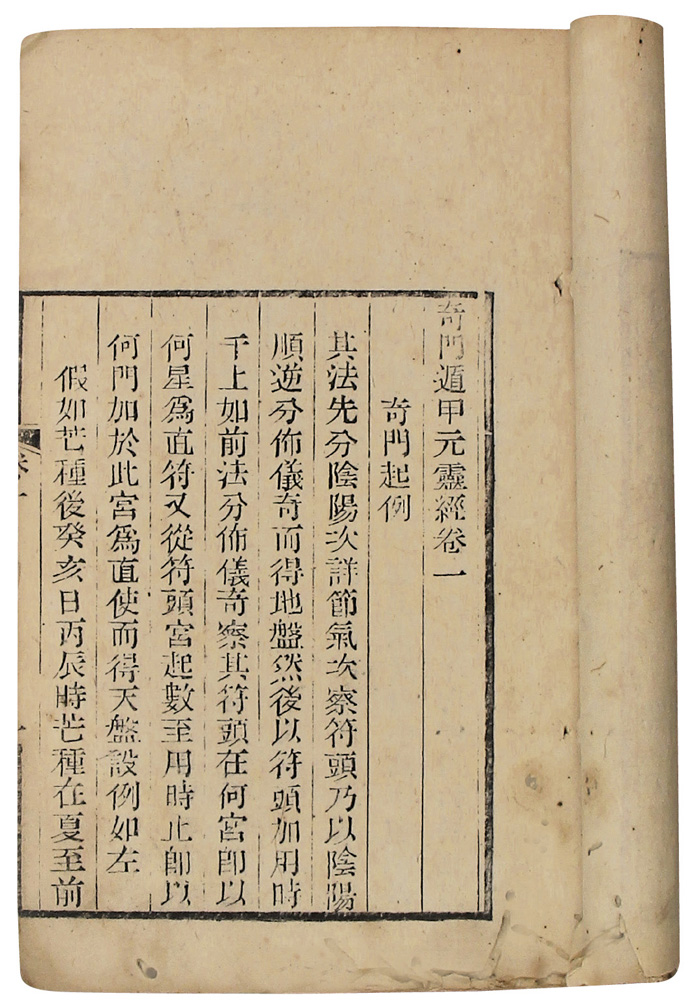 奇門遁甲元靈經卷一
奇門起例
其法先分陰陽次詳節氣次察符頭乃以陰陽
順逆分佈儀奇而得地盤然後以符頭加用時
干上如前法分佈儀奇察其符頭在何宮卽以
何星爲直符又從符頭宮起數至用時止卽以
何門加於此宮爲直使而得天盤設例如左
假如芒種後癸亥日丙辰時芒種在夏至前
卷一